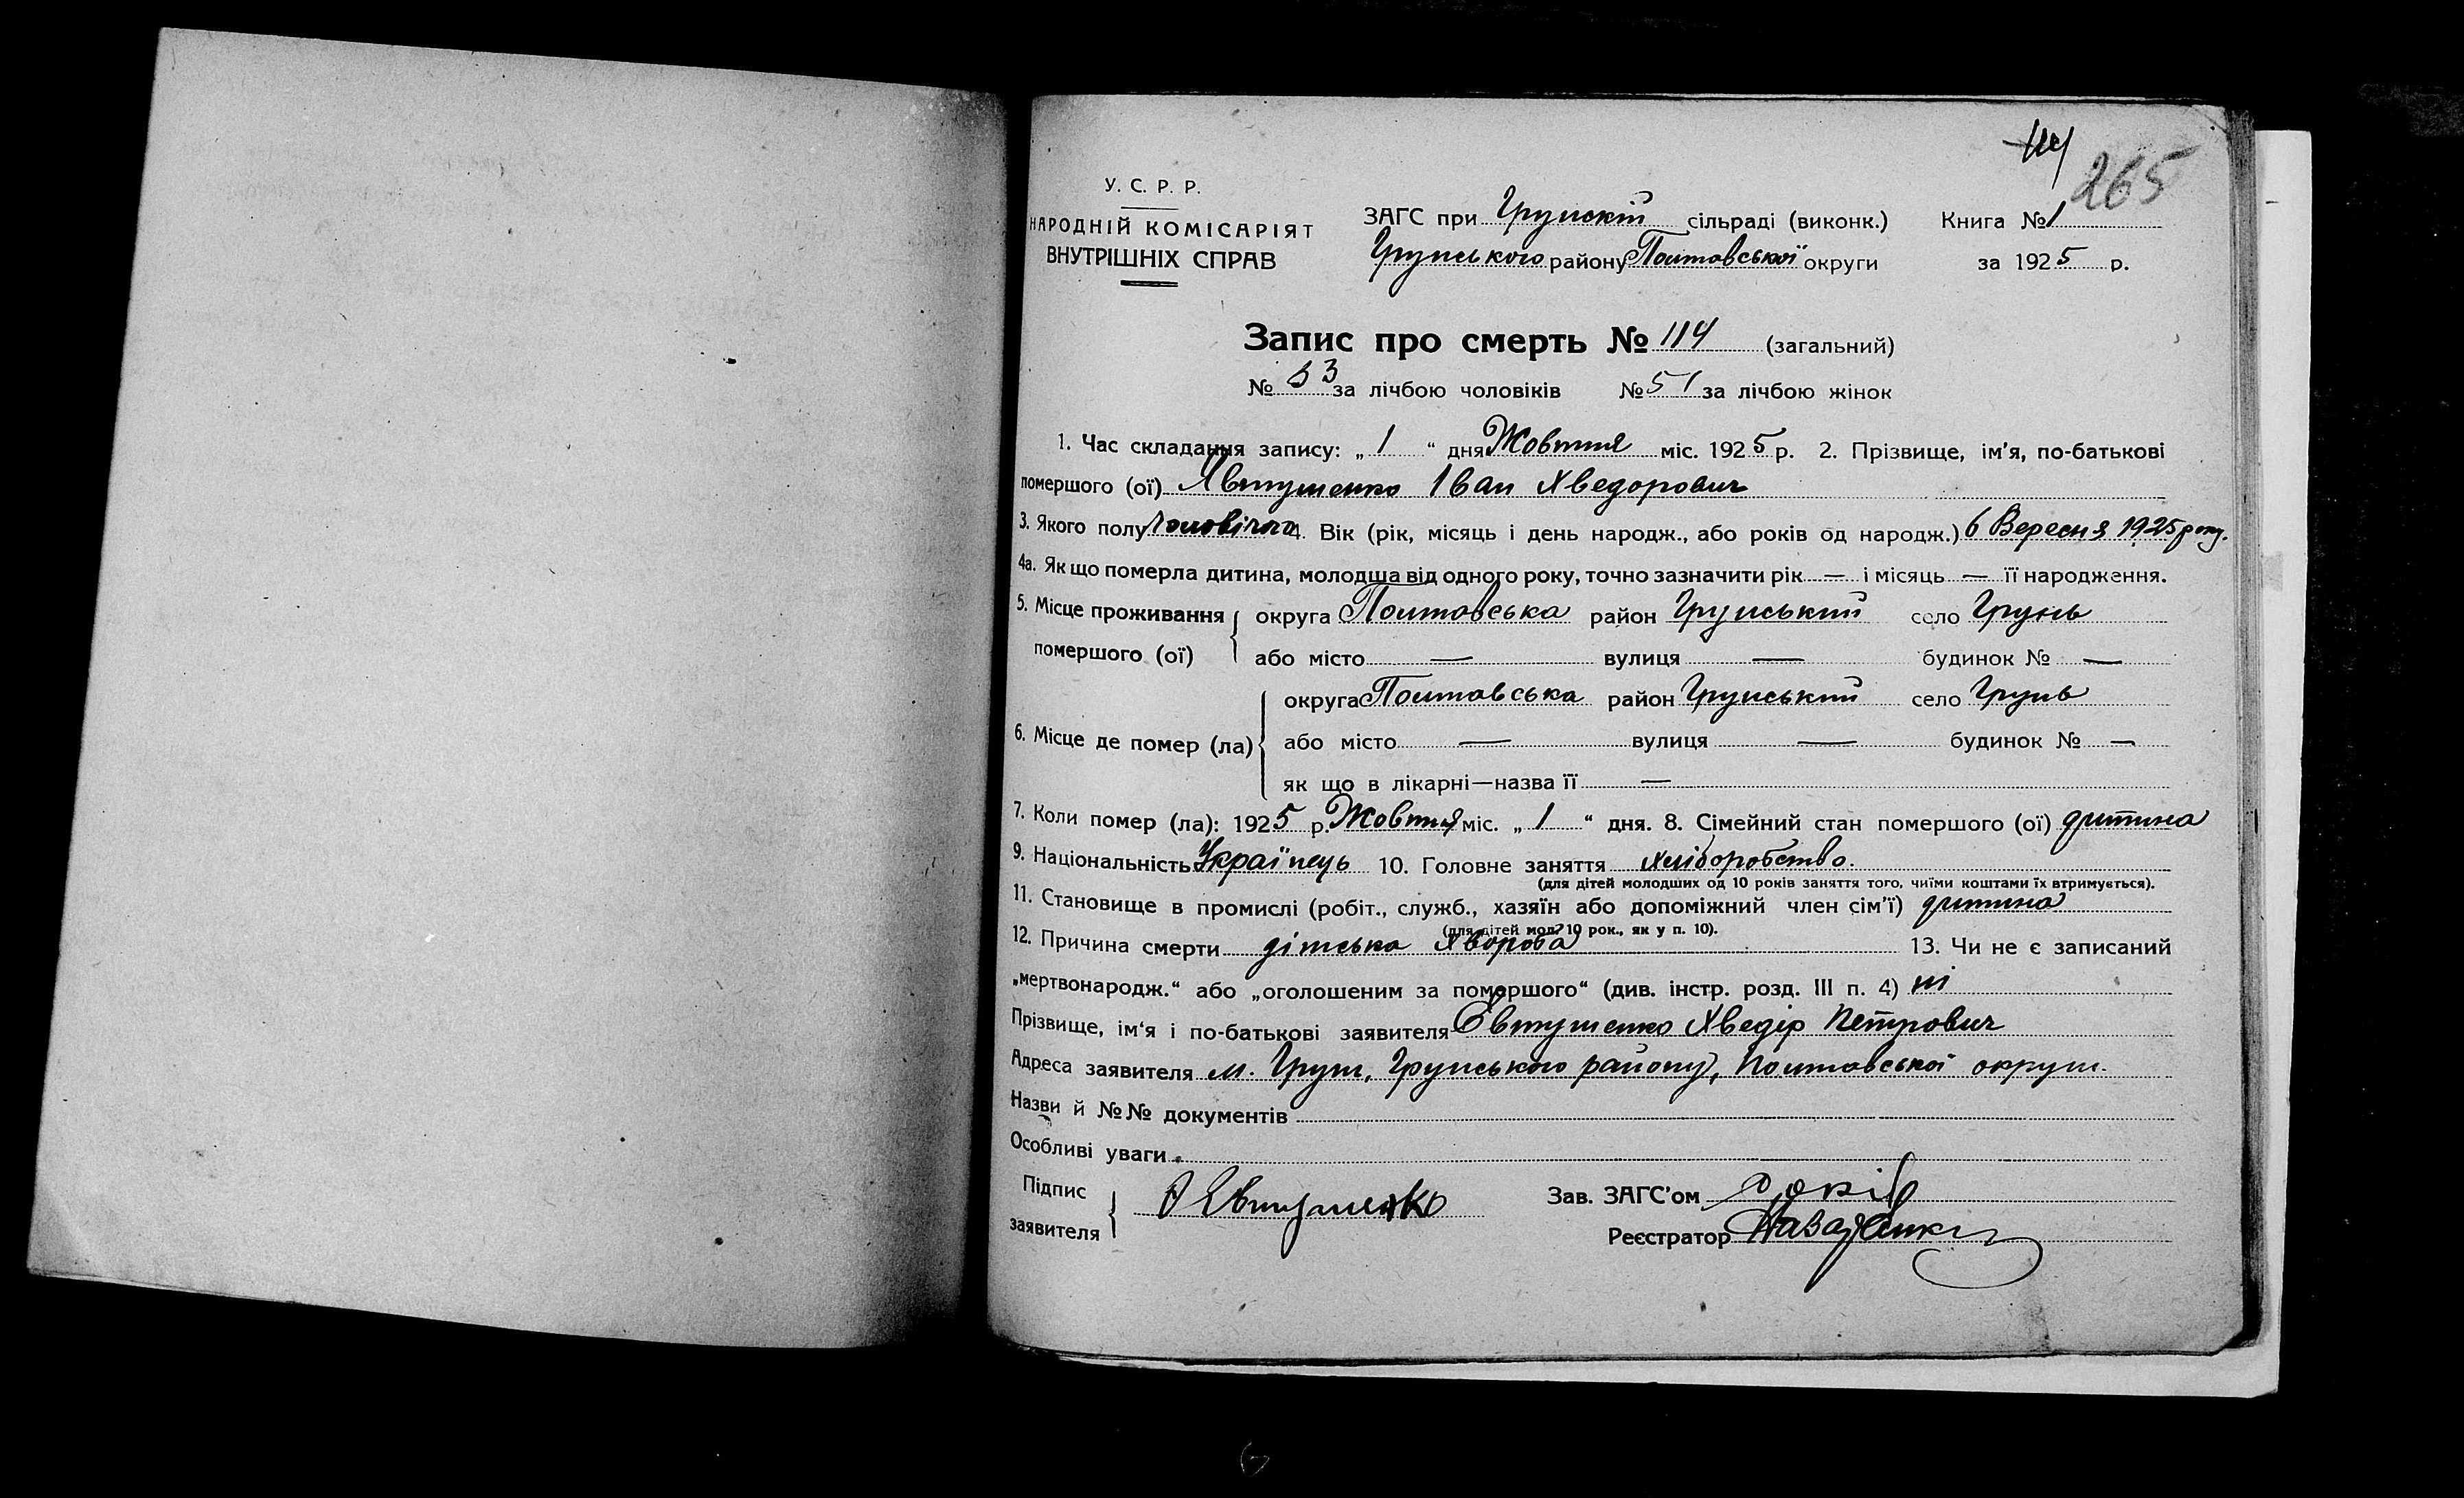 114
265
У. С. Р. Р.
НАРОДНІЙ КОМІСАРІЯТ
ВНУТРІШНІХ СПРАВ
ЗАГС при Грунскій сільраді (виконк.) Книга № 1
Грунського району Полтавської округи за 1925 р.
Запис про смерть № 114 (загальний)
№ 53 за лічбою чоловіків № 51 за лічбою жінок
1. Час складання запису: „ 1 “ дня Жовтня міс. 1925 р. 2. Прізвище, ім’я, по-батькові
помершого (ої) Явтушенко Іван Хведорович
3. Якого полу чоловічого 4. Вік (рік, місяць і день народж., або років од народж.) 6 Вересня 1925 року.
4а. Як що померла дитина, молодша від одного року, точно зазначити рік — і місяць — її народження.
5. Місце проживання округа Полтавська район Грунський село Грунь
помершого (ої) або місто — вулиця — будинок № —
округа Полтавська район Грунський село Грунь
6. Місце де помер (ла) або місто — вулиця — будинок № —
як що в лікарні—назва її —
7. Коли помер (ла): 1925 р. Жовтня міс. „ 1 “ дня. 8. Сімейний стан помершого (ої) дитина
9. Національність Українець 10. Головне заняття хліборобство.
(для дітей молодших од 10 років заняття того, чиїми коштами їх втримується).
11. Становище в промислі (робіт., служб., хазяїн або допоміжний член сім’ї) дитина
(для дітей мол. 10 рок., як у п. 10).
12. Причина смерти дітська хвороба 13. Чи не є записаний
„мертвонародж.“ або „оголошеним за помершого“ (див. інстр. розд. III п. 4) ні
Прізвище, ім‘я і по-батькові заявителя Євтушенко Хведір Петрович
Адреса заявителя м. Грунь, Грунського району, Полтавської округи.
Назви й №№ документів
Особливі уваги
Підпис
заявителя Євтушенко
Зав. ЗАГС’ом
Реєстратор